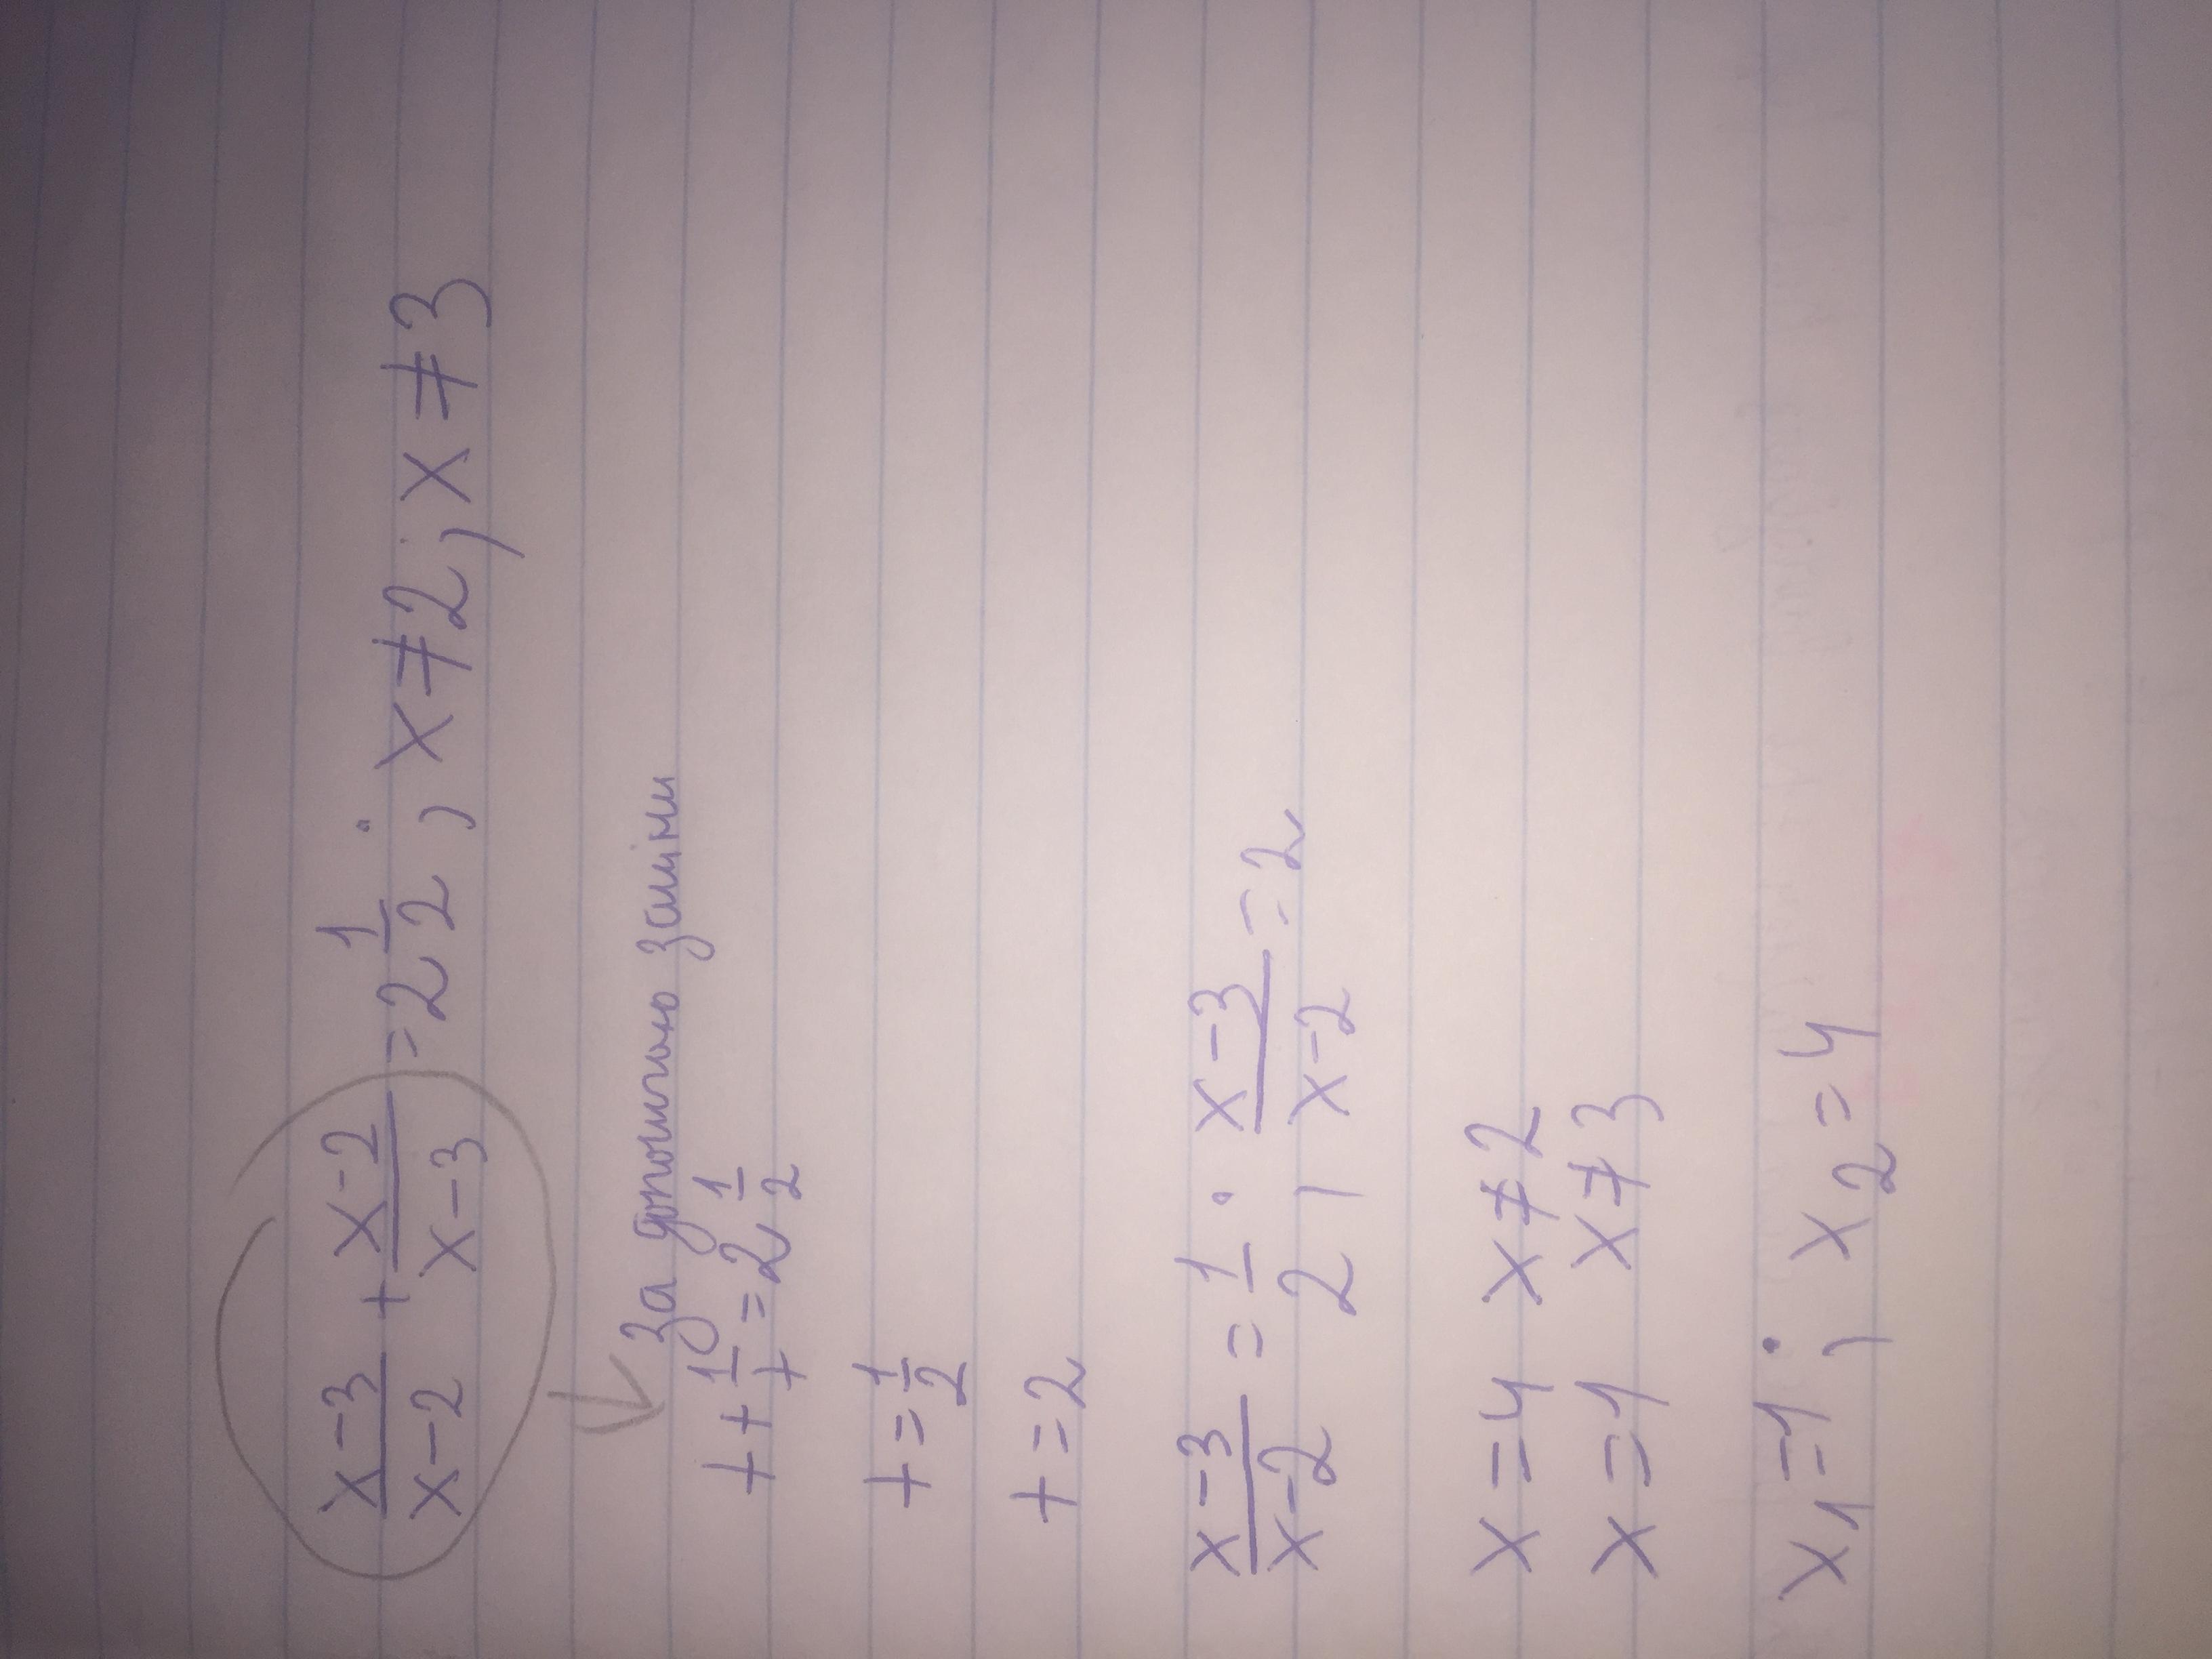 x-3/x-2 + x-2/x-3 = 2 1/2 ; x ≠ 2 ; x ≠ 3
за допомогою заміни
t + 1/t = 2 1/2
t = 1/2
t = 2
x-3/x-2 = 1/2 ; x-3/x-2 = 2
x = 4 x ≠ 2
x = 1 x ≠ 3
x₁ = 1 ; x₂ = 4